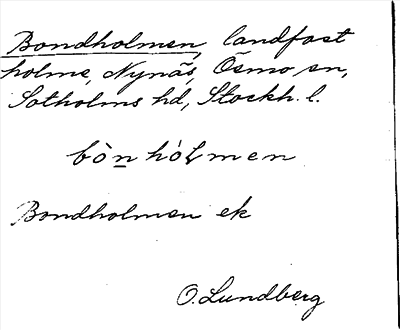 Bondholmen, landfast
holme, Nynäs, Ösmo sn,
Sotholms hd, Stockh. l.
bò̱n hólmen
Bondholmen ek
O. Lundberg